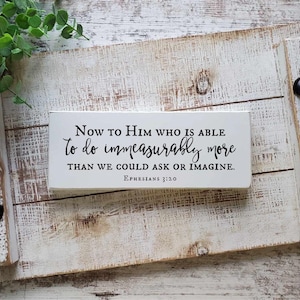 Now to Him who is able
to do immeasurably more
than we could ask or imagine.
Ephesians 3:20